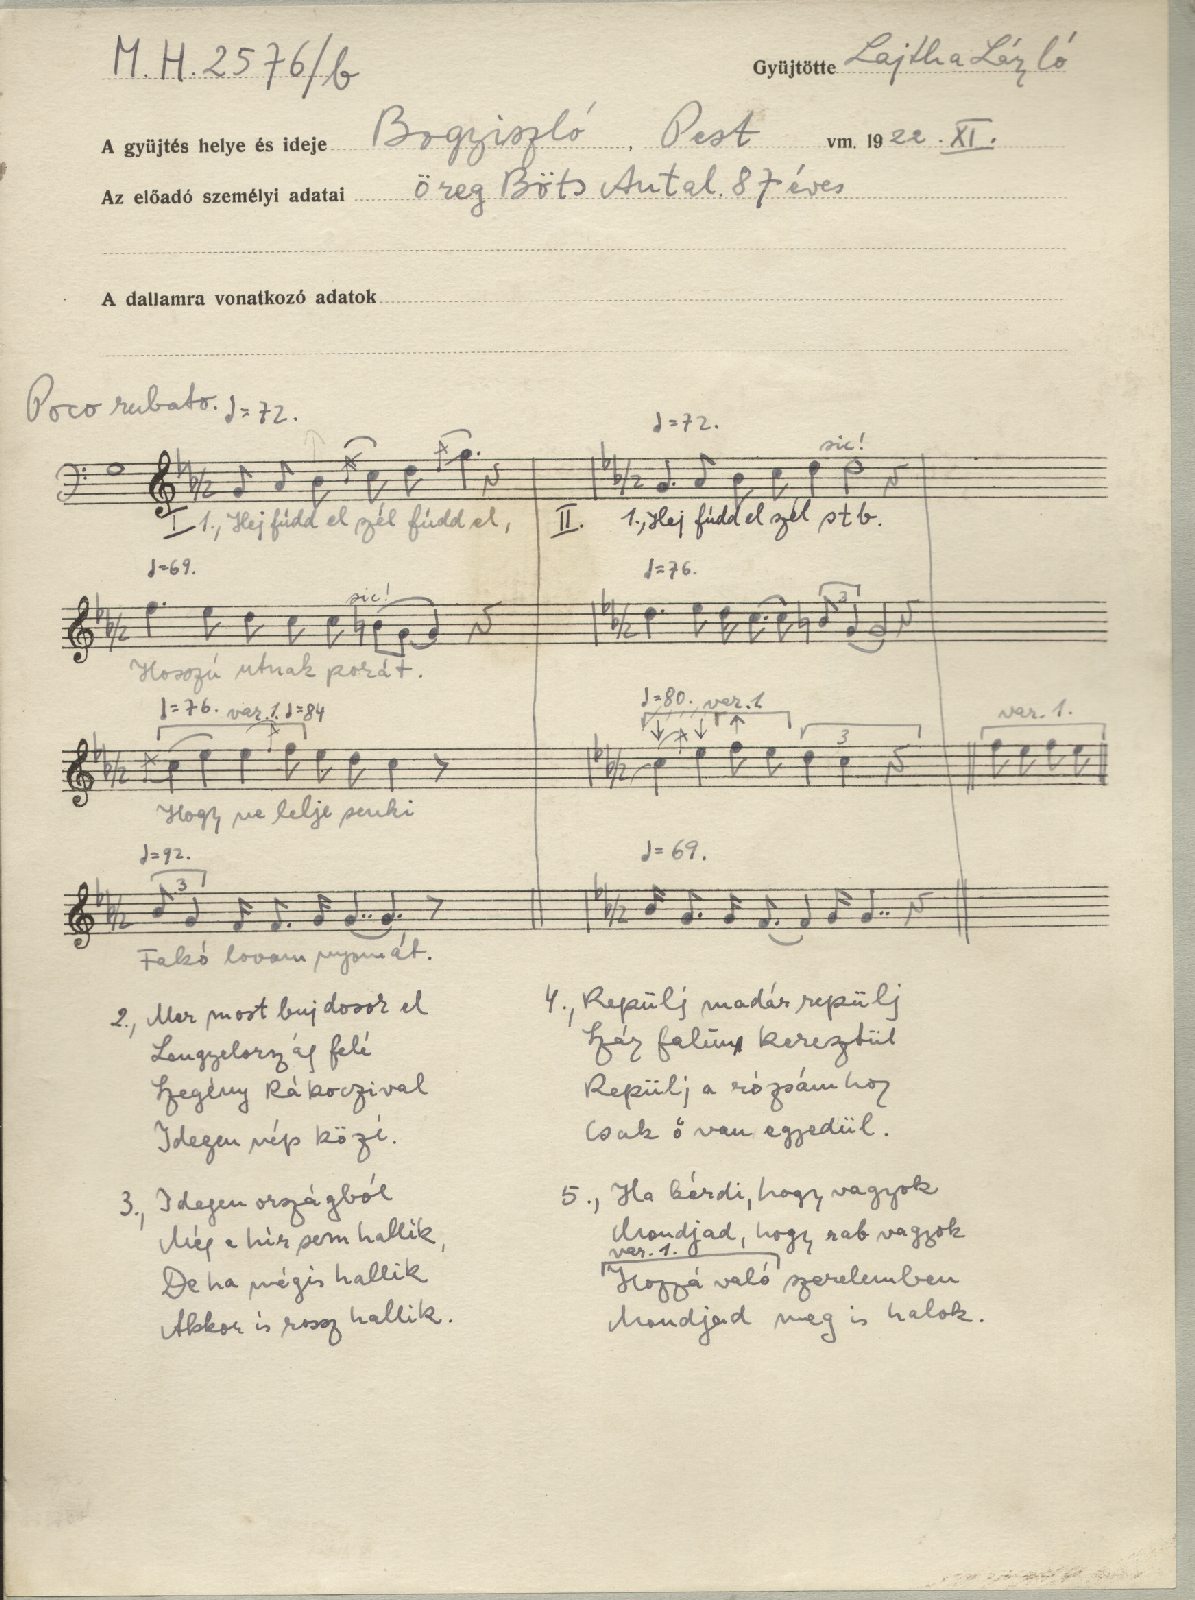 M. H. 2576/b
Gyüjtötte Lajtha László
A gyüjtés helye és ideje Bogyiszló, Pest vm. 1922. XI.
Az előadó személyi adatai öreg Böts Antal. 87 éves
A dallamra vonatkozó adatok
Poco rubato. ♩=72.
♩=72.
sic!
I 1., Hej fúdd el szél fúdd el,
II. 1., Hej fúdd el szél stb.
♩=69.
♩=76.
sic!
3
Hosszú utnak porát.
♩=76. var. 1. ♩=84
♩=80. var. 1.
var. 1.
3
Hogy ne lelje senki
♩=92.
♩=69.
3
Fakó lovam nyomát.
2., Mer most bujdosok el
Lengyelország felé
Szegény Rákoczival
Idegen nép közé.
3., Idegen országból
Még a hír sem hallik,
De ha mégis hallik
Akkor is rossz hallik.
4., Repülj madár repülj
Ház falúny keresztül
Repülj a rózsámhoz
Csak ő van egyedül.
5., Ha kérdi, hogy vagyok
Mondjad, hogy rab vagyok
var. 1.
Hozzá való szerelemben
Mondjad meg is halok.